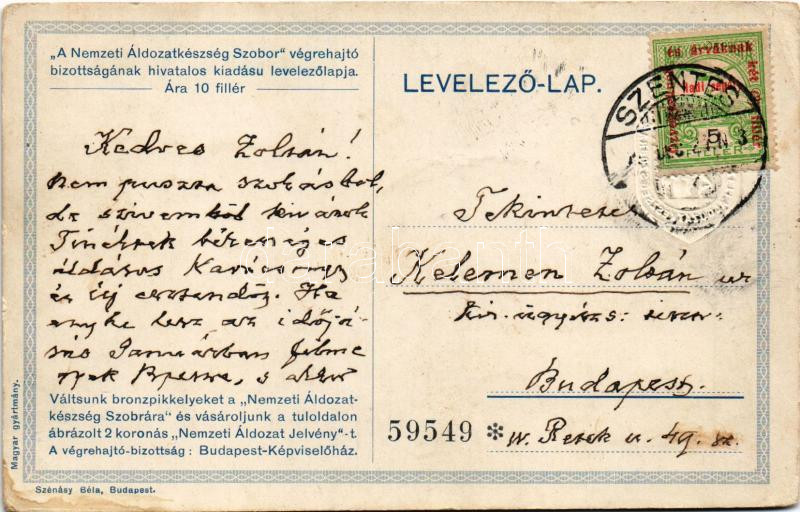 „A Nemzeti Áldozatkészség Szobor" végrehajtó
bizottságának hivatalos kiadásu levelezőlapja.
Ára 10 fillér
LEVELEZŐ-LAP.
és árváknak
Hadi
SZENTES
5
FILLÉR
Kedves Zoltán!
Nem puszta szokásból,
de szivemből kivánok
Tinéktek békességes
áldásos Karácsonyt
és új esztendőt. Ha
enyhe lesz az időjá-
rás Januárban felme-
gyek Pestre, s akkor
Tekintetes
Kelemen Zoltán ur
kir. ügyész
Budapest.
IV. Retek u. 49. sz.
Váltsunk bronzpikkelyeket a „Nemzeti Áldozat-
készség Szobrára" és vásároljunk a tuloldalon
ábrázolt 2 koronás „Nemzeti Áldozat Jelvény"-t.
A végrehajtó-bizottság: Budapest-Képviselőház.
59549 *
Magyar gyártmány.
Szénásy Béla, Budapest.
darabanth